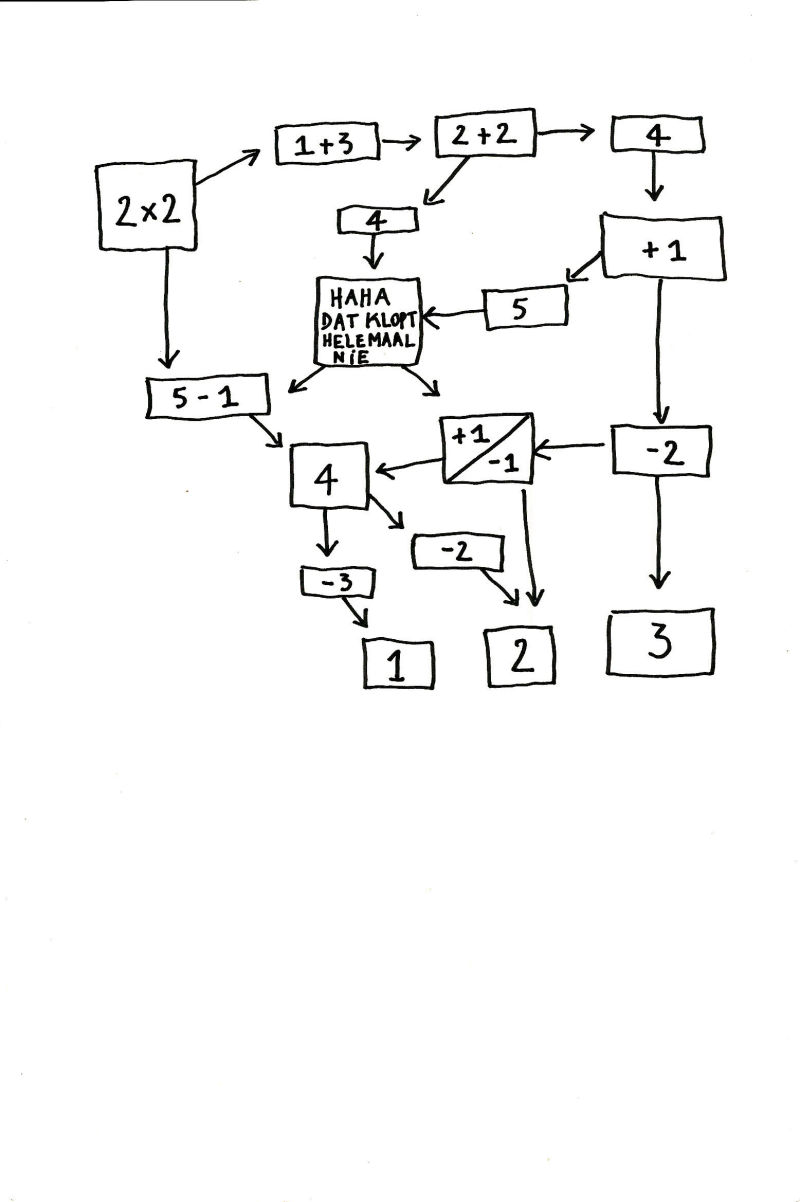 1+3
2+2
4
2×2
4
+1
HAHA
DAT KLOPT
HELEMAAL
NIE
5
5-1
+1
-1
-2
4
-2
-3
1
2
3